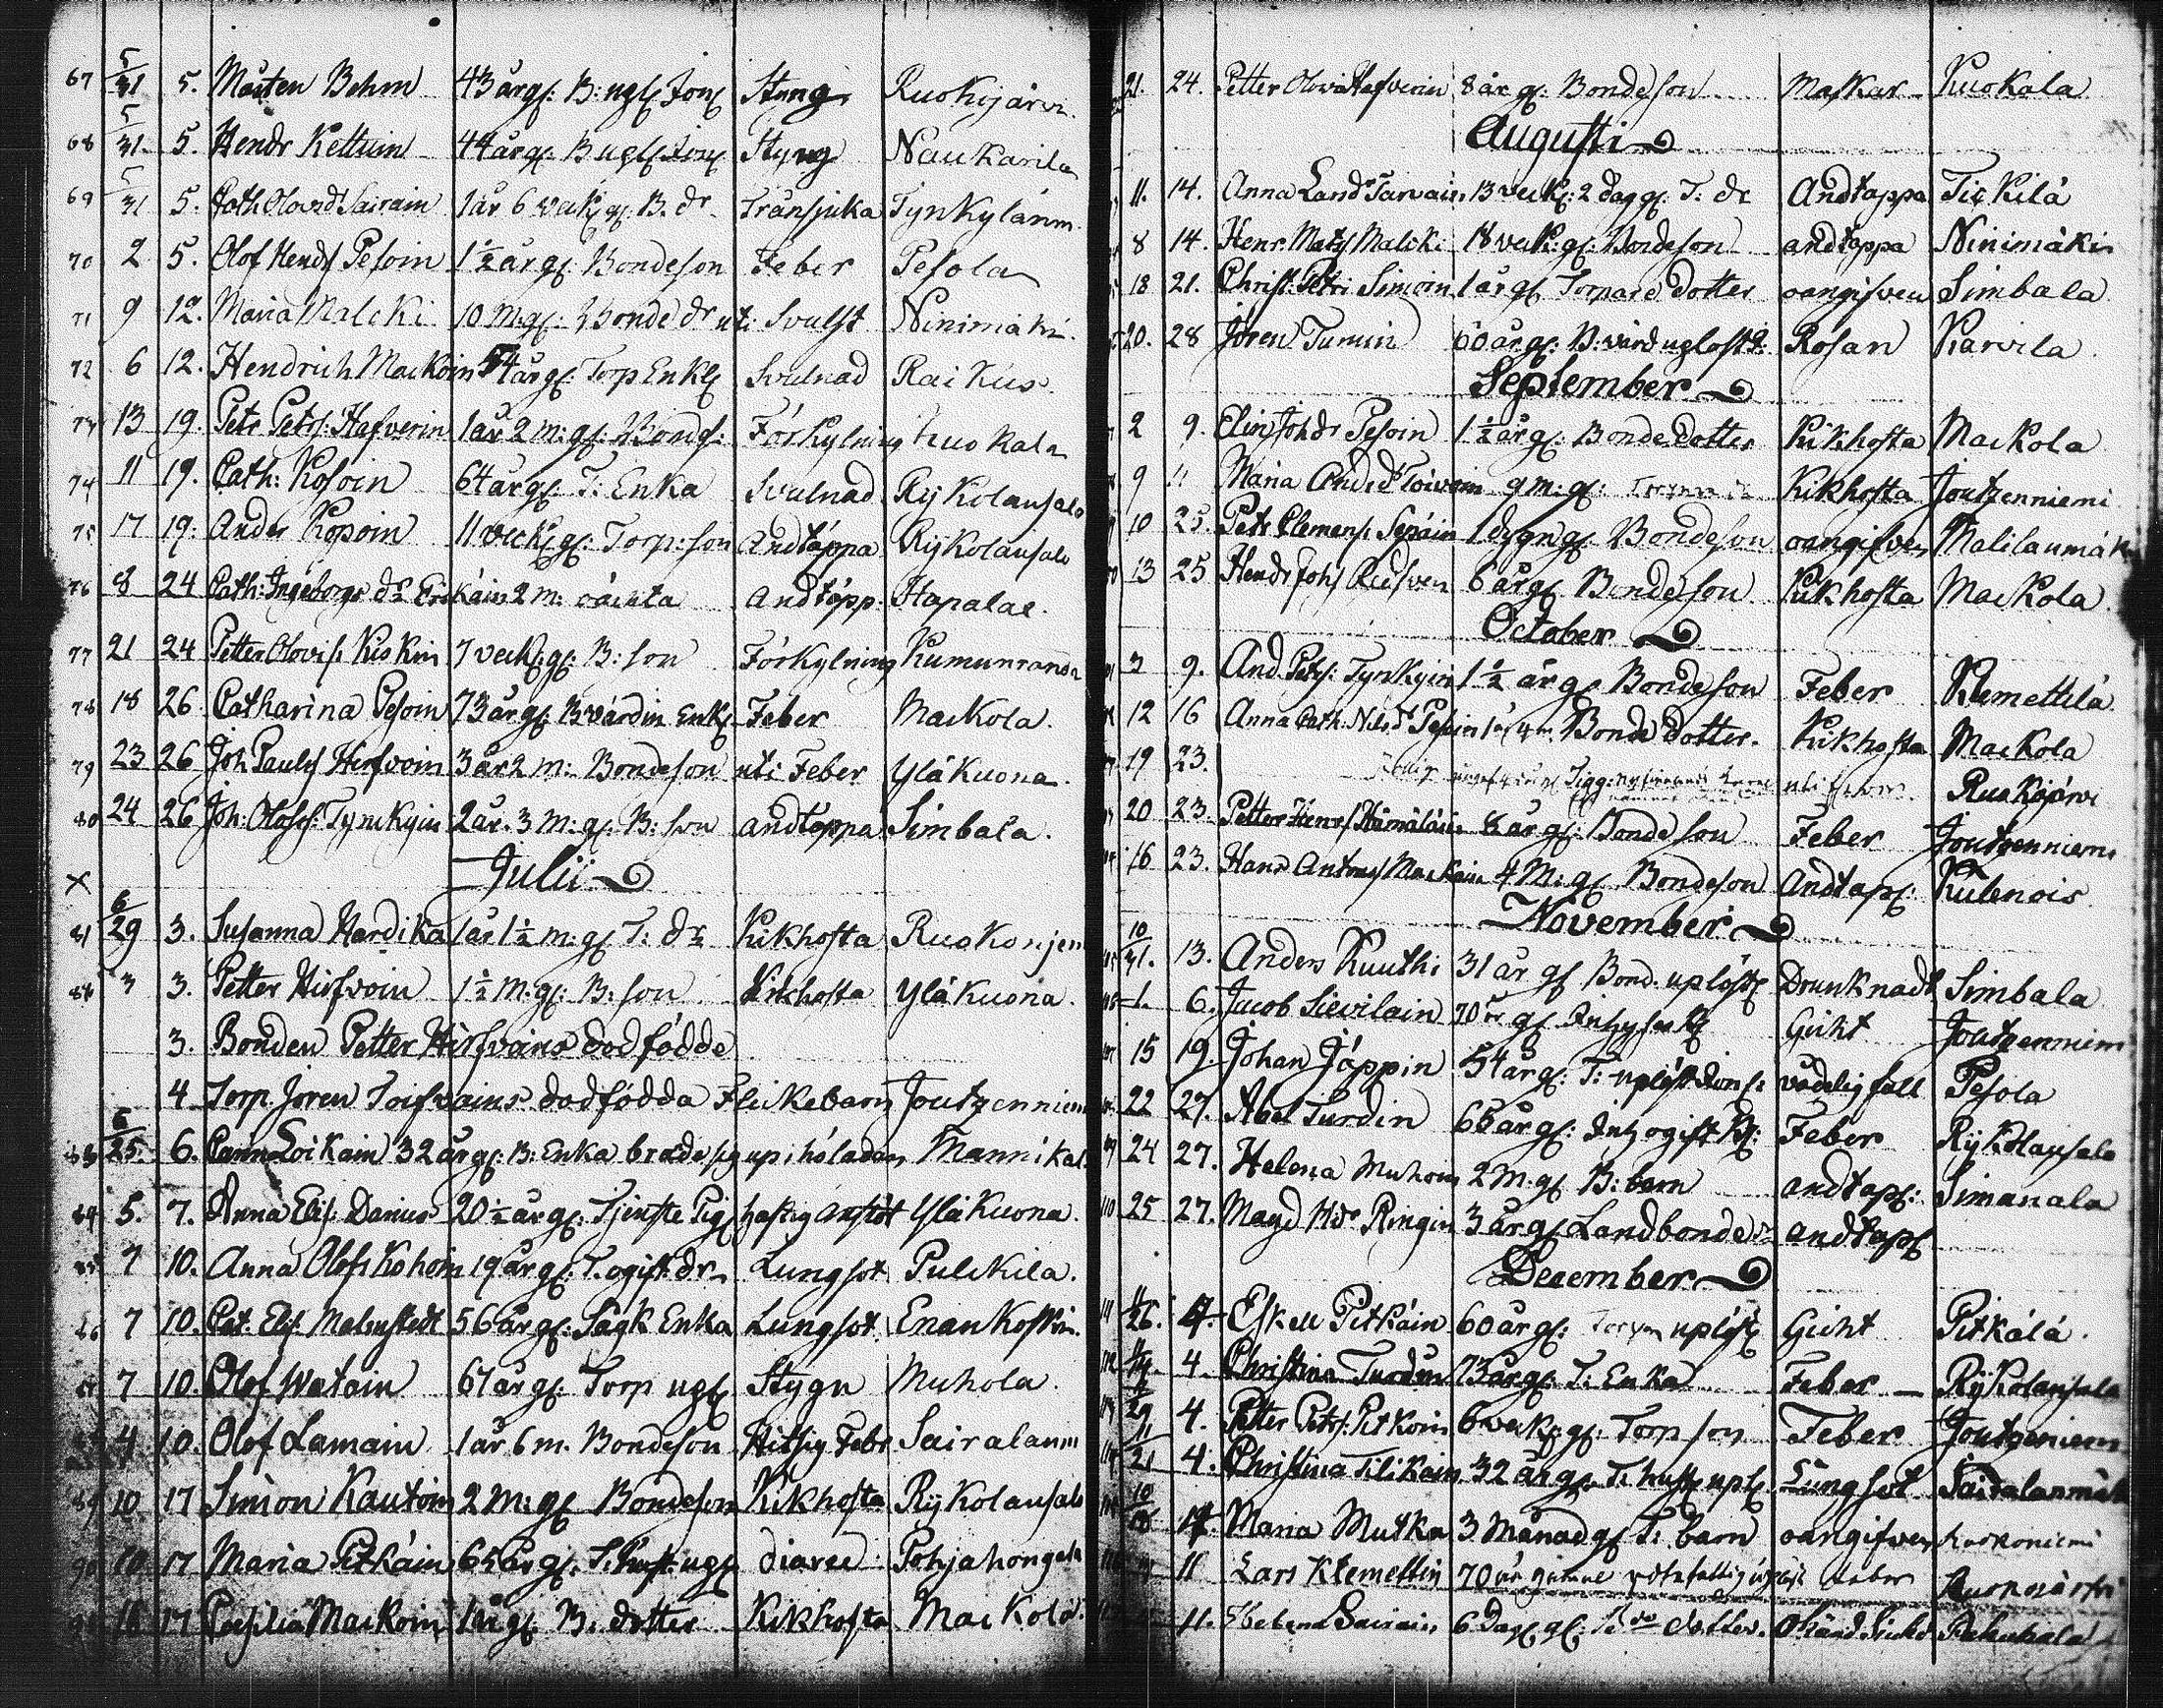 67 5/31 5. Mårten Behm 43 årg: B: ugl Styng Ruokojärvi
68 5/31 5. Hendr Kettuin 44 årg: B ugl Styng Naukarila
69 5/31 5. Cath Olovdr Sairain 1 år 6 veck g: B. dr Tränsjuka Tynkylänm.
70 2 5. Olof Hends Pesoin 1½ år g: Bondeson Feber Pesola
71 9 12. Maria Malcki 10 m: g: Bonde dr uti Svulst Ninimäki
72 6 12. Hendrich Mackoin 54 år g: Torp Enkl Svulnad Raikus
73 13 19. Petr Petrs: Hafverin 1 år 2 m: g: Bonds: Förkylning Kuokala
74 11 19. Cath: Kosoin 64 år g: T: Enka Svulnad Rykolansalo
75 17 19. Ander Kopoin 11 veck g: Torp: son Andtäppa Rykolansalo
76 8 24 Cath: Ingeborgs dr Erikäin 2 m: oächta Andtäpp. Hapalae.
77 21 24 Petter Olovis Kiskin 7 veck: g: B: son Förkylning Kumunranda
78 18 26. Catharina Pesoin 73 år g: B värdin Enk Feber Mackola.
79 23 26 Joh Pauls Hirfvoin 3 år 2 m: Bondeson uti Feber Yläkuona.
80 24 26 Joh: Olofss: Tynckyin 2 år. 3 m: g: B: son andtappa Simbala.
Julii
x
81 6/29 3. Susanna Hardika 1 år 1½ m: g T: dr Kikhosta Ruokonjem
3 3. Petter Hirfvoin 1½ M: g: B: son Kikhosta Yläkuona.
3. Bonden Petter Hirfvoins dödfödde
4 Torp. Jören Toifvains dödfödda Flickebarn Joutzenniem
83 6/25. 6. Carin Loikain 32 år g: B: Enka bräde sig up i hóladan Mannikal
84 5. 7. Anna Elis: Danius 20½ år g: Tjenste Pig hastig anstöt Yläkuona.
85 7 10. Anna Olofs Kohoin 19 år g: T. ogift dr Lungsot Pulckila.
86 7 10. Cat: Elis: Malmstedt 56 år g: Sågk Enka Lungsot. Enankoski.
87 7 10. Olof Watain 67 år g: Torp ugl Stygn Muhola.
88 4 10. Olof Lamain 1 år 6 m. Bondeson Hitsig Febr Sairalanm
89 10 17 Simon Kautoin 2 M: g Bondeson Kikhosta Rykolansalo
90 10 17 Maria Pitkäin 65 år g: T: hust: ugl diaree Pohjahongala
91 16 17 Caecilia Mackoin 1 år g B: dotter Kikhosta Mackola.
21. 24. Petter Olovi Hafverin 8 år g: Bondeson Maskar Kuokala
Augusti
11. 14. Anna Landr Tarvain 13 veck: 2 dag g: T: dr Andtappa Tickilä
8 14. Henr. Mats Malcki 18 veck: g: Bondeson andtappa Ninimäki
18 21. Christ: Petri Simoin 1 år g Torpare dotter oangifven Simbala
20. 28 Jören Turnin 60 år g: B: Rosan Karvila
September
2 9. Elin Joh dr Pesoin 1½ år g: Bonde dotter Kikhosta Mackola
9 11 Maria And: dr Toivain 9 m: g: Kikhosta Joutzenniemi
10 25. Petr Clemens: Sepäin 1 dygn g: Bondeson oangifven Malilanmäki
13 25 Hendr Johs 6 år g: Bondeson Kikhosta Mackola.
October
3 9. And. Petrs: Tynkyin 1½ år g Bondeson Feber Klemettilä
12 16 Anna Cath: Nils dr Pesoin 1 år 4 m. Bonde dotter. Kikhosta Mackola
19 23. Ruokojärvi
20 23. Petter Henrs Hämäläin 8 år g: Bondeson Feber Joutzenniem
16 23. Hans Antons Mackoin 4 M: g Bondeson Andtap: Kulenois
November
10/31. 13. Anders Kuuthi 31 år g Bond. uplöst Drunknadt Simbala
1. 6. Jacob Sievilain 70 år g Inhyses Gicht Joutzenniem
15 19. Johan Jäppin 54 år g: T: vådelig fall Pesola
22 27. Abel Turdin 66 år g: Inh ogift K: Feber Rykolansalo
24 27. Helena Muhoin 2 M: g B: barn andtap: Simanala
110 25 27. Magd Hdr Ringin 3 år g Landbonde dr andtap
December
11/26. 4. Eskell Pitkäin 60 år g: Torpar uplöst Gicht Pitkälä.
4. Christina Turdin 73 år g: T: Enka Feber Rykolansalo
29/11 4. Petter Petrs: Pitkoin 6 veck: g: Torp son Feber Joutzeniem
21 4. Christina Tilikain 32 år g: T: hust upl Lungsot Sairalanmäk
Maria Mutka 3 Månad g T: barn oangifven Karkoniemi
11 Lars Klemettin 70 år gammal Feber
11. Helena Sairain 6 Dag g: B dotter. Okänd Siukd